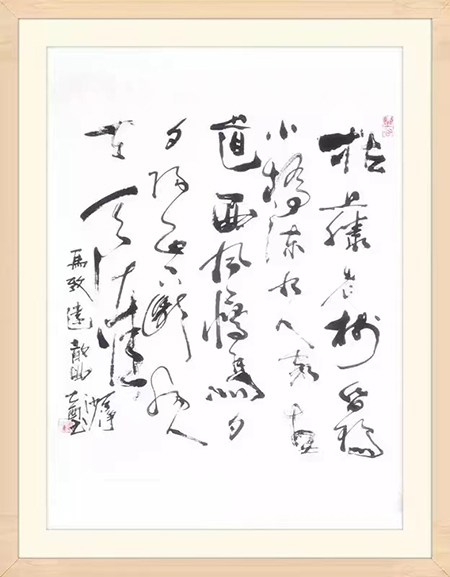 枯藤老树昏鸦
小桥流水人家古
道西风瘦馬夕
夕阳西下断肠人
在天涯
馬致遠
乙酉